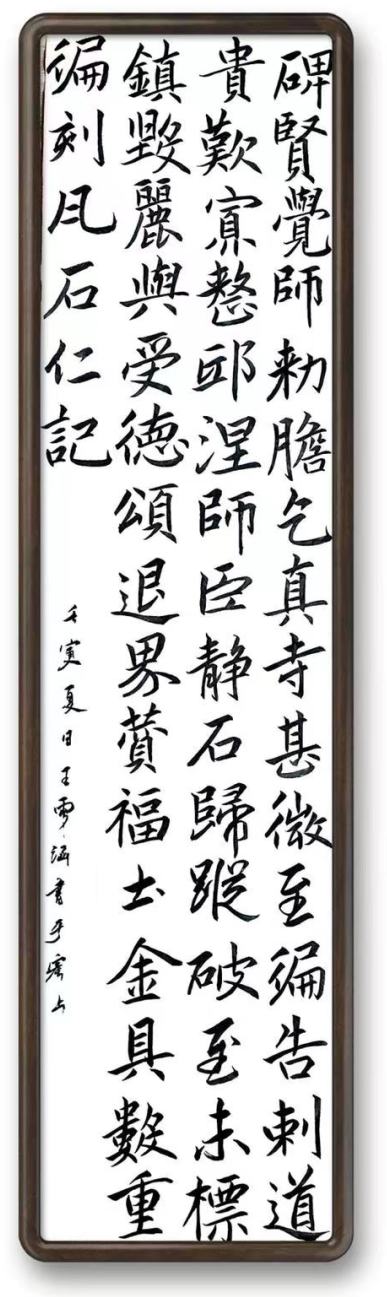 碑賢覺師勑膽乞真寺甚微至徧告刺道
貴歎寂整邱涅師臣靜石歸蹤破至未標
鎮毀麗與受德頌退界贊福士金具數重
徧刻凡石仁記
壬寅夏日王雲涵書于寓上